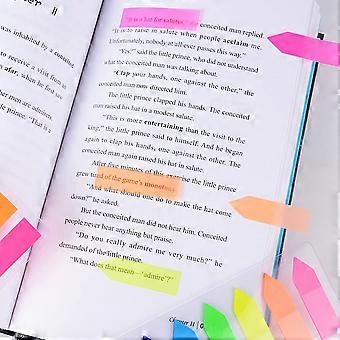 ter II
was inhabited by a conceit
afar, when he first saw
men are admirers.
man. "That is a
"It is a hat for salutes," the conceited man replied.
"It is to raise in salute when people acclaim me.
Unfortunately, nobody at all ever passes this way."
"Yes?" said the little prince, who did not understand
what the conceited man was talking about.
"Clap your hands, one against the other," the
conceited man now directed him.
The little prince clapped his hands. The conceited
man raised his hat in a modest salute.
"This is more entertaining than the visit to the
king," the little prince said to himself. And he began
again to clap his hands, one against the other. The
conceited man again raised his hat in salute.
After five minutes of this exercise the little prince
grew tired of the game's monotony
"And what should one do to make the hat come
down?" he asked.
But the conceited man did not hear him. Conceited
people never hear anything but praise.
"Do you really admire me very much?" he
demanded of the little prince.
"What does that mean—'admire'?"
Chapter II